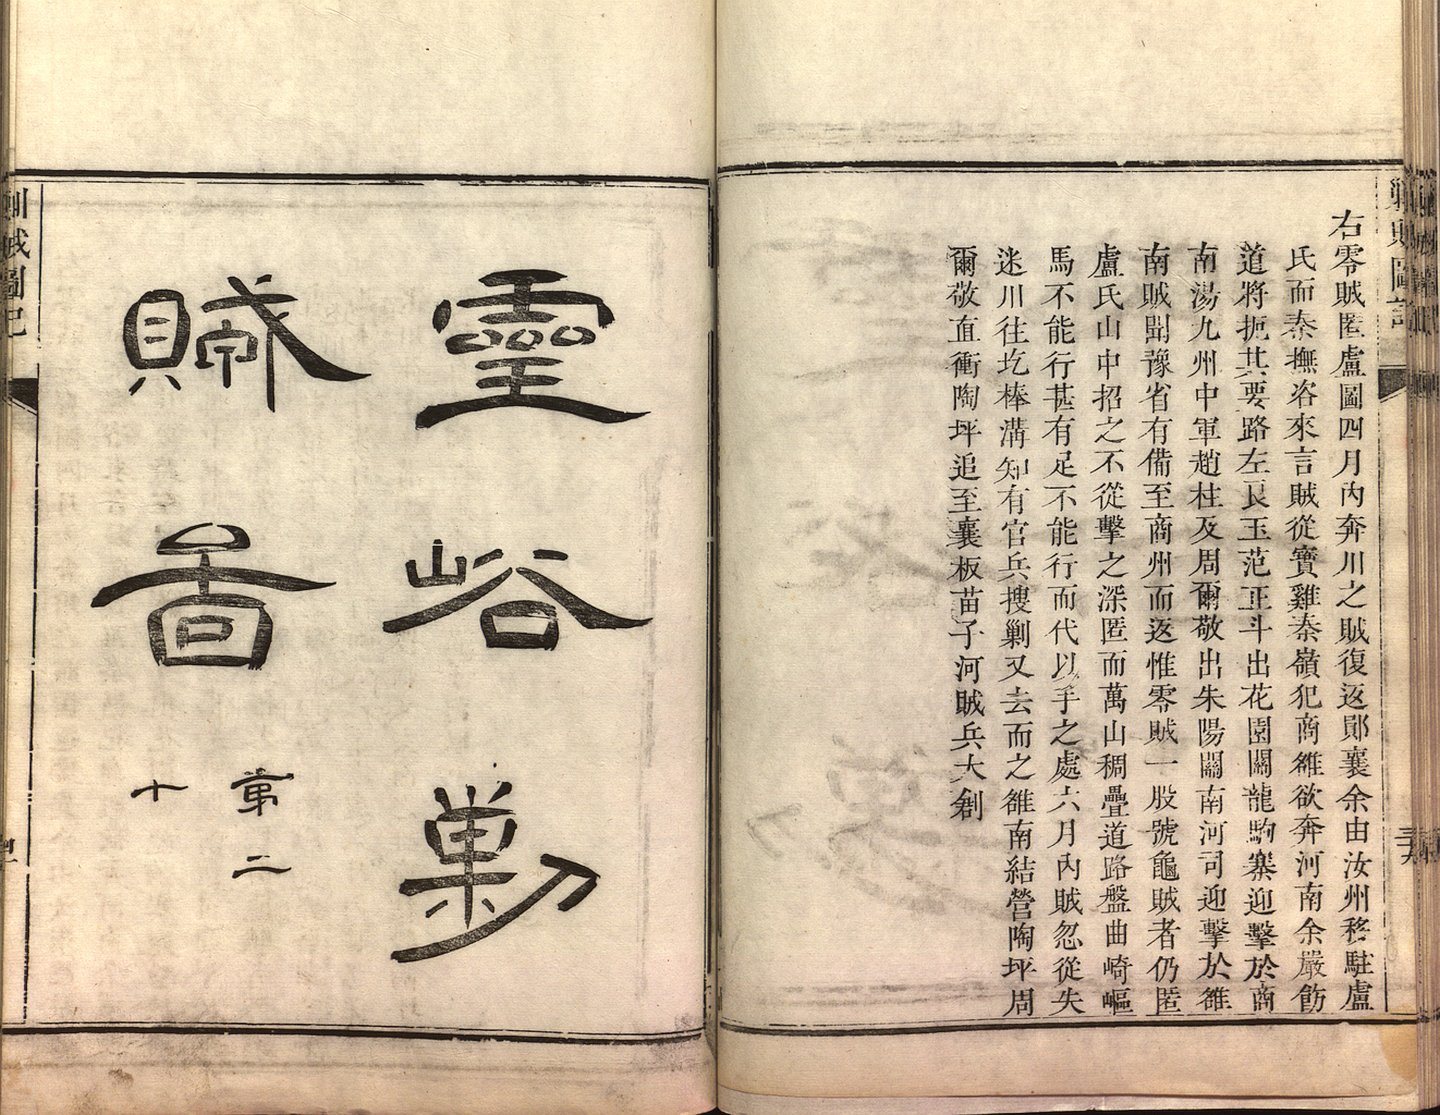 勦賊圖記
右零賊匿盧圖四月內奔川之賊復返鄖襄余由汝州移駐盧
氏而秦撫咨來言賊從寶雞秦嶺犯商雒欲奔河南余嚴飭
道將扼其要路左艮玉范正斗出花園關龍駒寨迎擊於商
南湯九州中軍趙柱及周爾敬出朱陽關南河司迎擊於雒
南賊聞豫省有備至商州而返惟零賊一股號龜賊者仍匿
盧氏山中招之不從擊之深匿而萬山稠疊道路盤曲崎嶇
馬不能行甚有足不能行而代以手之處六月內賊忽從失
迷川往圪棒溝知有官兵搜剿又去而之雒南結營陶坪周
爾敬直衝陶坪追至襄板苗子河賊兵大創
靈峪勦
賊啚
第二
十
勦賊圖記